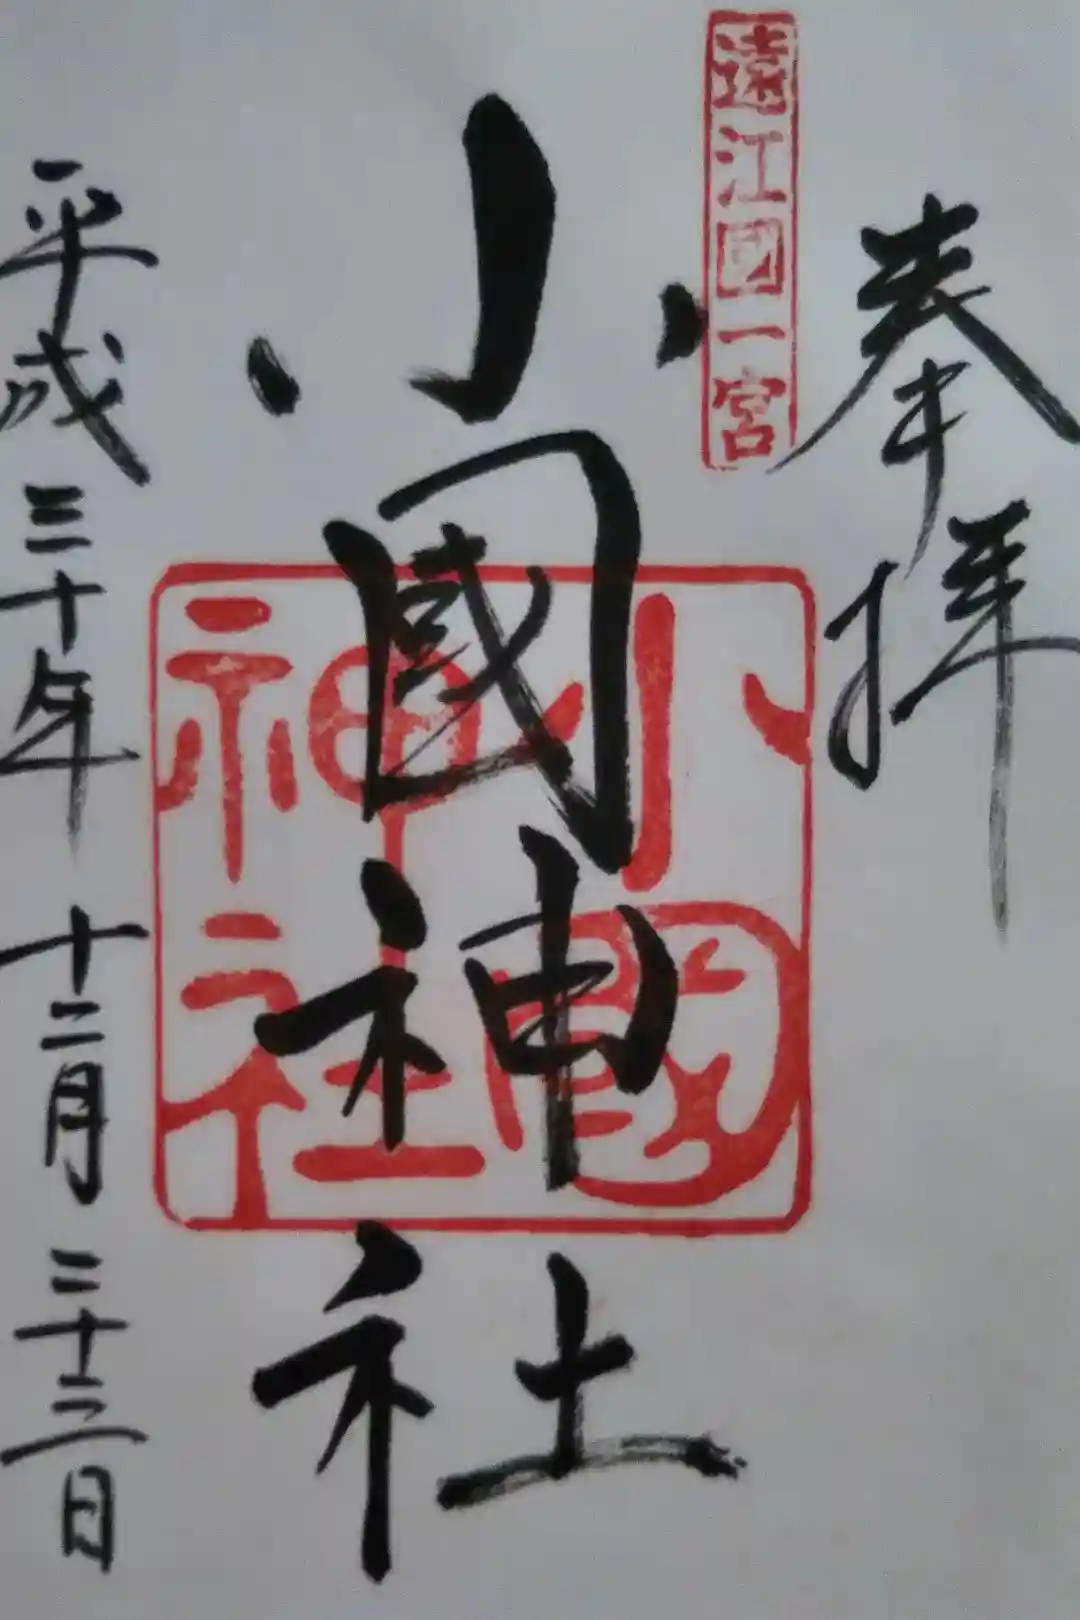 奉拝
遠江國一宮
小國神社
小國
神社
平成三十年 十二月 二十三日